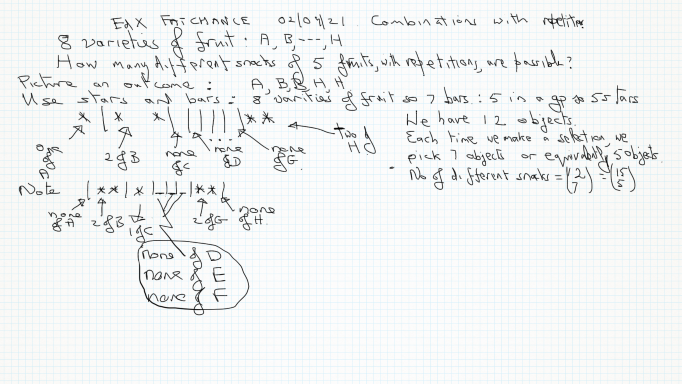 EdX FATCHANCE 02/04/21 Combinations with repetition
8 varieties of fruit : A, B, ---, H
How many different snacks of 5 fruits, with repetitions, are possible?
Picture an outcome : A, B, B, H, H
Use stars and bars : 8 varieties of fruit so 7 bars : 5 in a go so 5 stars
* | * | * | | | | | * *
one of A
2 of B
none of C
none of D
none of G
two of H
We have 12 objects.
Each time we make a selection, we
pick 7 objects or equivalently 5 objects.
No of different snacks = (12 7) = (15 5)
Note | * * | * | _ | _ | _ | * * |
none of A
2 of B
1 of C
2 of G
none of H
none of D
none of E
none of F